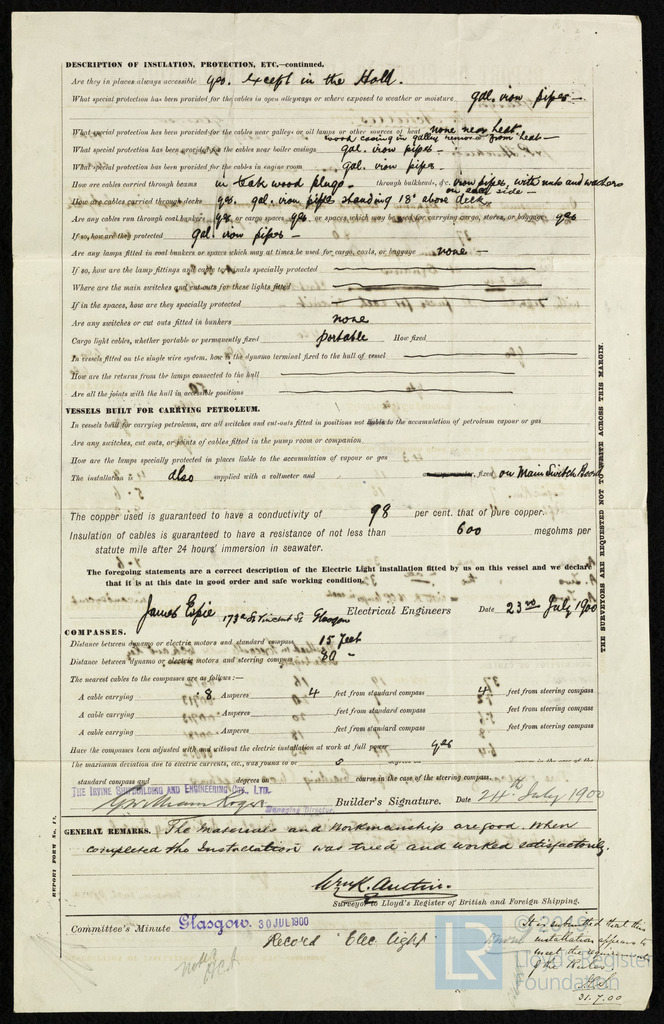 DESCRIPTION OF INSULATION, PROTECTION, ETC.—continued.
Are they in places always accessible yes. except in the Hold.
What special protection has been provided for the cables in open alleyways or where exposed to weather or moisture gal. iron pipes —
What special protection has been provided for the cables near galley or oil lamps or other sources of heat none near heat
wood casing in galley removed from heat —
What special protection has been provided for the cables near boiler casings gal. iron pipes —
What special protection has been provided for the cables in engine room gal. iron pipes —
How are cables carried through beams in teak wood plugs — through bulkheads, &c. iron pipes with nuts and washers
on each side —
How are cables carried through decks yes. gal. iron pipes standing 18" above deck
Are any cables run through coal bunkers yes or cargo spaces yes or spaces which may be used for carrying cargo, stores, or baggage yes
If so, how are they protected gal. iron pipes —
Are any lamps fitted in coal bunkers or spaces which may at times be used for cargo, coals, or baggage none —
If so, how are the lamp fittings and cable terminals specially protected
Where are the main switches and cut-outs for these lights fitted
If in the spaces, how are they specially protected
Are any switches or cut outs fitted in bunkers none
Cargo light cables, whether portable or permanently fixed portable How fixed
In vessels fitted on the single wire system, how is the dynamo terminal fixed to the hull of vessel
How are the returns from the lamps connected to the hull
Are all the joints with the hull in accessible positions
VESSELS BUILT FOR CARRYING PETROLEUM.
In vessels built for carrying petroleum, are all switches and cut-outs fitted in positions not liable to the accumulation of petroleum vapour or gas
Are any switches, cut outs, or joints of cables fitted in the pump room or companion
How are the lamps specially protected in places liable to the accumulation of vapour or gas
The installation is also supplied with a voltmeter and fixed on Main Switch Board
The copper used is guaranteed to have a conductivity of 98 per cent. that of pure copper.
Insulation of cables is guaranteed to have a resistance of not less than 600 megohms per
statute mile after 24 hours' immersion in seawater.
The foregoing statements are a correct description of the Electric Light installation fitted by us on this vessel and we declare
that it is at this date in good order and safe working condition.
James Espie 173a St Vincent St Glasgow Electrical Engineers Date 23rd July 1900
COMPASSES.
Distance between dynamo or electric motors and standard compass 15 feet
Distance between dynamo or electric motors and steering compass 80 "
The nearest cables to the compasses are as follows:—
A cable carrying 8 Amperes 4 feet from standard compass 4 feet from steering compass
A cable carrying Amperes feet from standard compass feet from steering compass
A cable carrying Amperes feet from standard compass feet from steering compass
Have the compasses been adjusted with and without the electric installation at work at full power yes
The maximum deviation due to electric currents, etc., was found to be degrees on course in the case of the
standard compass and degrees on course in the case of the steering compass.
THE IRVINE SHIPBUILDING AND ENGINEERING COY., LTD.
Managing Director. Builder's Signature. Date 24th July 1900
GENERAL REMARKS. The materials and workmanship are good. When
completed the Installation was tried and worked satisfactorily.
Wm K. Austin.
Surveyor to Lloyd's Register of British and Foreign Shipping.
Committee's Minute Glasgow. 30 JUL 1900
Record Elec light
It is submitted that this
installation appears to
meet the requirements
of the Rules.
31.7.00
noted
THE SURVEYORS ARE REQUESTED NOT TO WRITE ACROSS THIS MARGIN.
REPORT FORM No. 11.
© 2019
LR
Lloyd's Register
Foundation